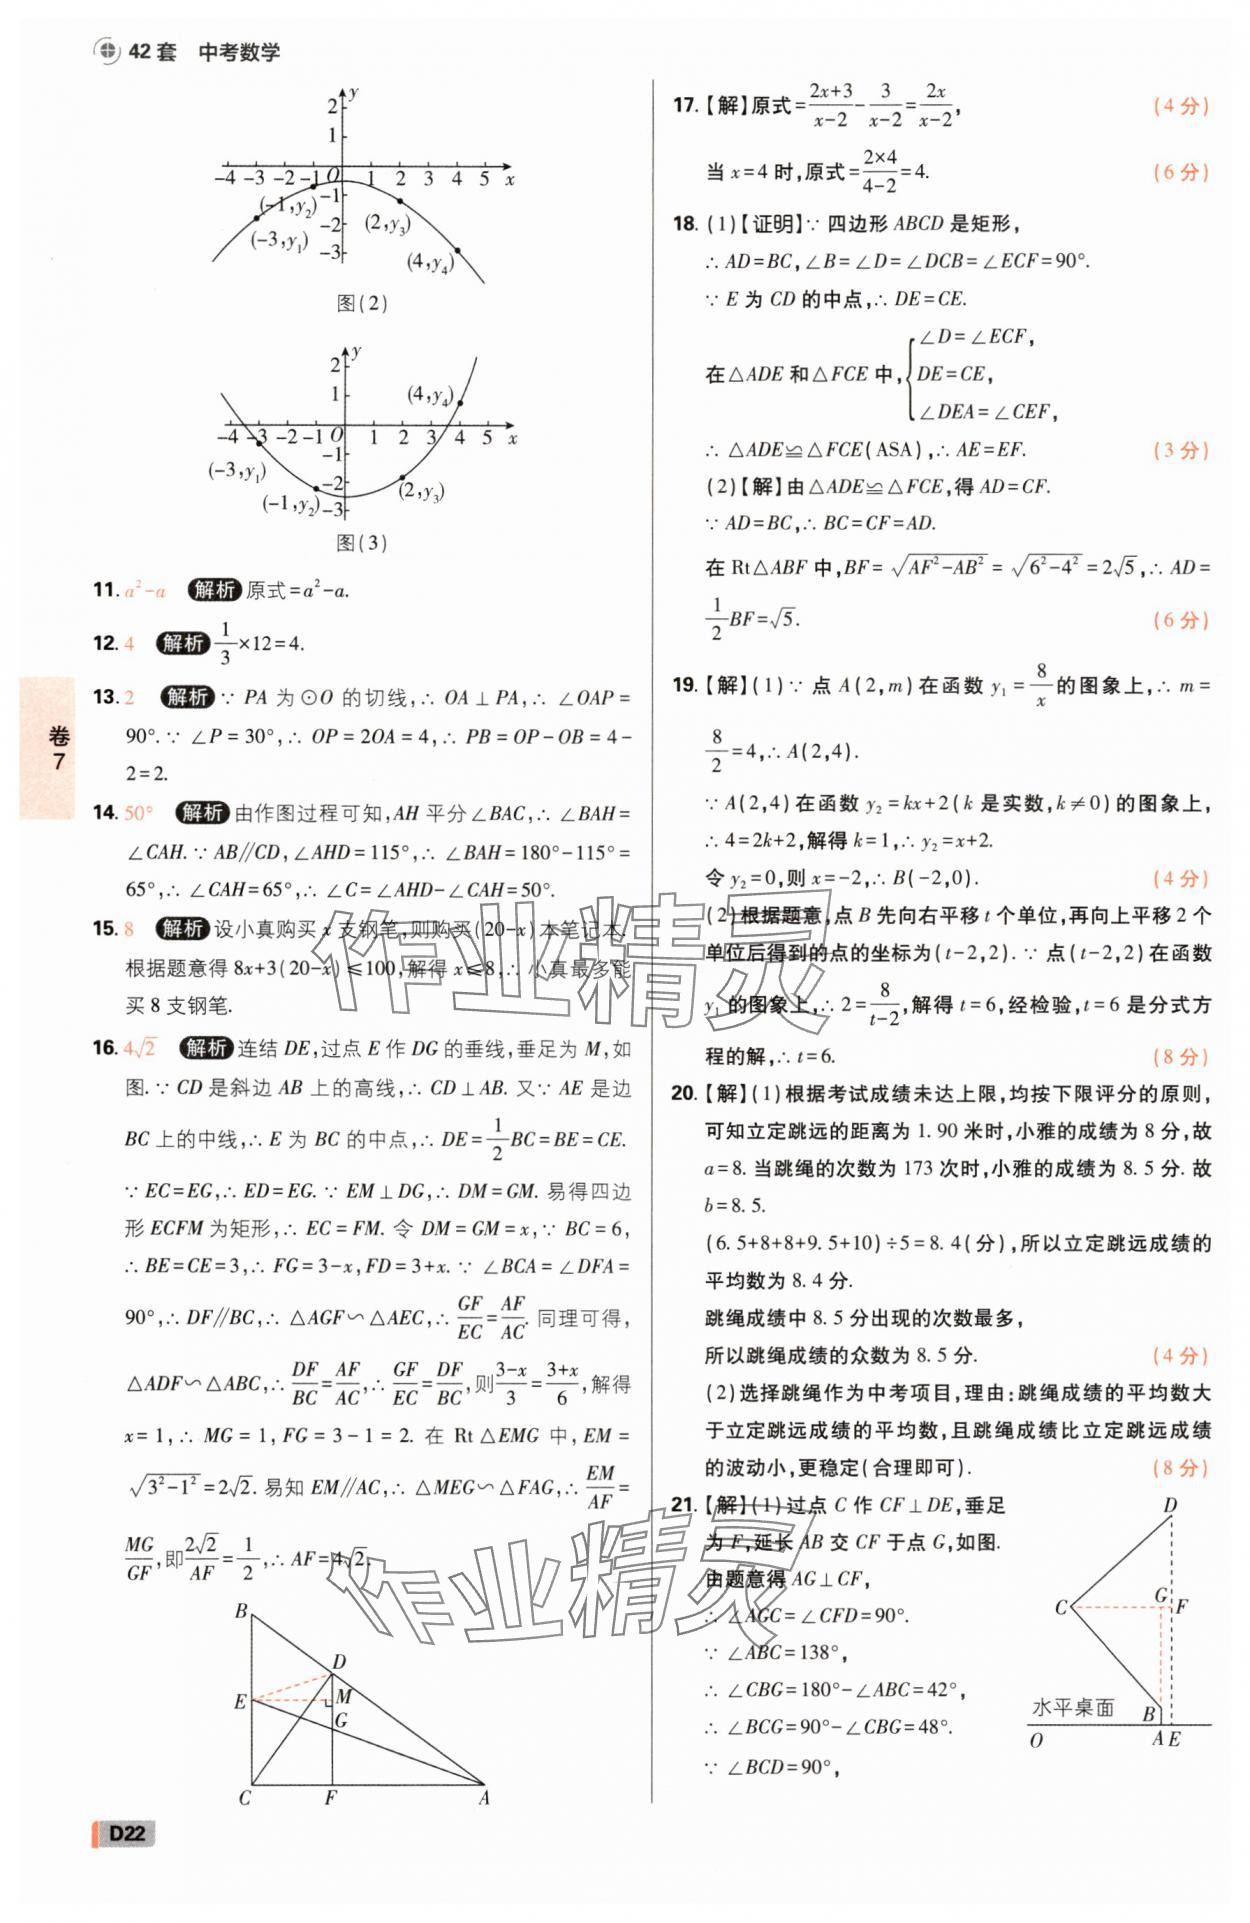 42 套 中考数学
y
2
1
-4 -3 -2 -1 O 1 2 3 4 5 x
(-1,y₂) -1
-2 (2,y₃)
(-3,y₁) -3 (4,y₄)
图(2)
y
2
1 (4,y₄)
-4 -3 -2 -1 O 1 2 3 4 5 x
-1
(-3,y₁)
-2
(-1,y₂) -3 (2,y₃)
图(3)
11. a²-a 解析 原式=a²-a.
12. 4 解析 1/3×12=4.
13. 2 解析 ∵ PA 为⊙O 的切线,∴ OA⊥PA,∴ ∠OAP=
90°.∵ ∠P=30°,∴ OP=2OA=4,∴ PB=OP-OB=4-
2=2.
14. 50° 解析 由作图过程可知,AH 平分∠BAC,∴ ∠BAH=
∠CAH.∵ AB∥CD,∠AHD=115°,∴ ∠BAH=180°-115°=
65°,∴ ∠CAH=65°,∴ ∠C=∠AHD-∠CAH=50°.
15. 8 解析 设小真购买 x 支钢笔,则购买(20-x)本笔记本.
根据题意得 8x+3(20-x)≤100,解得 x≤8,∴ 小真最多能
买 8 支钢笔.
16. 4√2 解析 连结 DE,过点 E 作 DG 的垂线,垂足为 M,如
图.∵ CD 是斜边 AB 上的高线,∴ CD⊥AB. 又∵ AE 是边
BC 上的中线,∴ E 为 BC 的中点,∴ DE=1/2BC=BE=CE.
∵ EC=EG,∴ ED=EG.∵ EM⊥DG,∴ DM=GM. 易得四边
形 ECFM 为矩形,∴ EC=FM. 令 DM=GM=x,∵ BC=6,
∴ BE=CE=3,∴ FG=3-x,FD=3+x.∵ ∠BCA=∠DFA=
90°,∴ DF∥BC,∴ △AGF∽△AEC,∴ GF/EC=AF/AC. 同理可得,
△ADF∽△ABC,∴ DF/BC=AF/AC,∴ GF/EC=DF/BC,则(3-x)/3=(3+x)/6,解得
x=1,∴ MG=1,FG=3-1=2. 在 Rt△EMG 中,EM=
√(3²-1²)=2√2. 易知 EM∥AC,∴ △MEG∽△FAG,∴ EM/AF=
MG/GF,即2√2/AF=1/2,∴ AF=4√2.
B
D
E M
G
C F A
17.【解】原式=(2x+3)/(x-2)-3/(x-2)=2x/(x-2), (4 分)
当 x=4 时,原式=(2×4)/(4-2)=4. (6 分)
18. (1)【证明】∵ 四边形 ABCD 是矩形,
∴ AD=BC,∠B=∠D=∠DCB=∠ECF=90°.
∵ E 为 CD 的中点,∴ DE=CE.
∠D=∠ECF,
在△ADE 和△FCE 中,{DE=CE,
∠DEA=∠CEF,
∴ △ADE≌△FCE(ASA),∴ AE=EF. (3 分)
(2)【解】由△ADE≌△FCE,得 AD=CF.
∵ AD=BC,∴ BC=CF=AD.
在 Rt△ABF 中,BF=√(AF²-AB²)=√(6²-4²)=2√5,∴ AD=
1/2BF=√5. (6 分)
19.【解】(1)∵ 点 A(2,m)在函数 y₁=8/x的图象上,∴ m=
8/2=4,∴ A(2,4).
∵ A(2,4)在函数 y₂=kx+2(k 是实数,k≠0)的图象上,
∴ 4=2k+2,解得 k=1,∴ y₂=x+2.
令 y₂=0,则 x=-2,∴ B(-2,0). (4 分)
(2)根据题意,点 B 先向右平移 t 个单位,再向上平移 2 个
单位后得到的点的坐标为(t-2,2).∵ 点(t-2,2)在函数
y₁ 的图象上,∴ 2=8/(t-2),解得 t=6,经检验,t=6 是分式方
程的解,∴ t=6. (8 分)
20.【解】(1)根据考试成绩未达上限,均按下限评分的原则,
可知立定跳远的距离为 1.90 米时,小雅的成绩为 8 分,故
a=8. 当跳绳的次数为 173 次时,小雅的成绩为 8.5 分. 故
b=8.5.
(6.5+8+8+9.5+10)÷5=8.4(分),所以立定跳远成绩的
平均数为 8.4 分.
跳绳成绩中 8.5 分出现的次数最多,
所以跳绳成绩的众数为 8.5 分. (4 分)
(2)选择跳绳作为中考项目,理由:跳绳成绩的平均数大
于立定跳远成绩的平均数,且跳绳成绩比立定跳远成绩
的波动小,更稳定(合理即可). (8 分)
21.【解】(1)过点 C 作 CF⊥DE,垂足
为 F,延长 AB 交 CF 于点 G,如图.
由题意得 AG⊥CF,
∴ ∠AGC=∠CFD=90°.
∵ ∠ABC=138°,
∴ ∠CBG=180°-∠ABC=42°,
∴ ∠BCG=90°-∠CBG=48°.
∵ ∠BCD=90°,
D
C G F
水平桌面 B
O A E
卷
7
D22
作业精灵
作业精灵